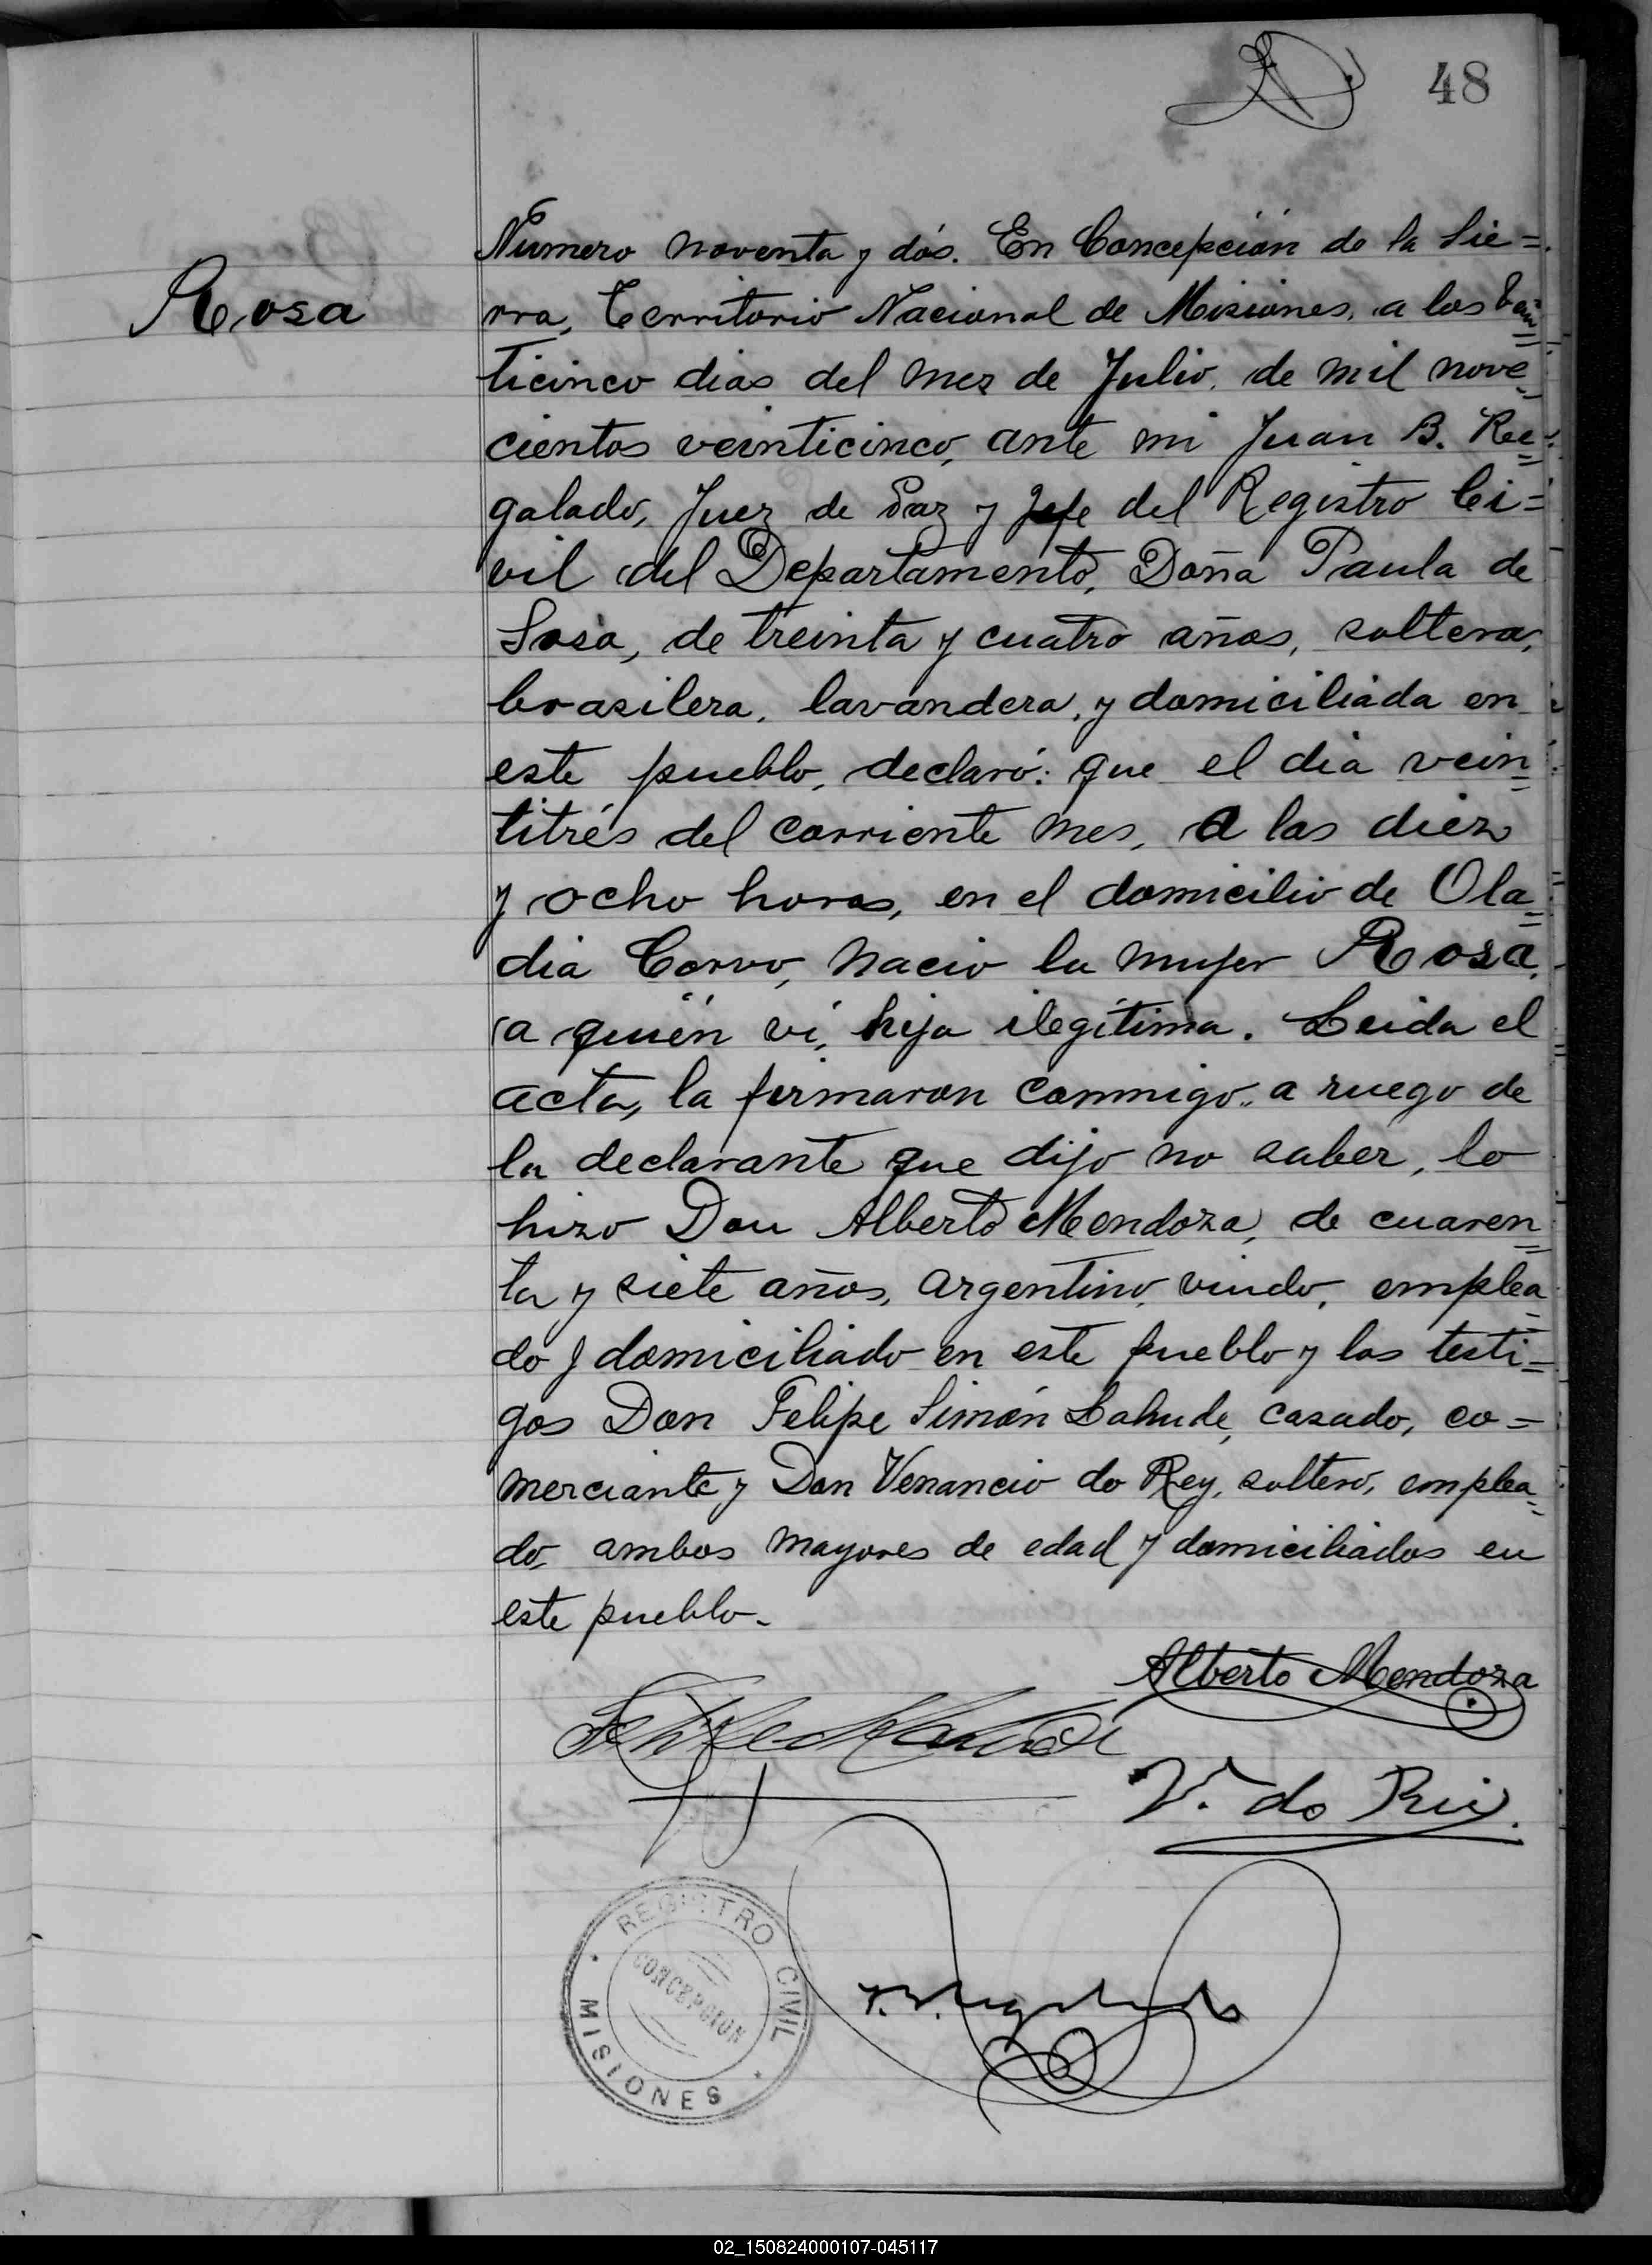 48
Rosa
Número noventa y dós. En Concepción de la Sie=
rra, Territorio Nacional de Misiones, a los vein=
ticinco dias del mes de Julio, de mil nove=
cientos veinticinco, ante mi Juan B. Re=
galado, Juez de Paz y Jefe del Registro Ci=
vil del Departamento, Doña Paula de
Sosa, de treinta y cuatro años, soltera,
brasilera, lavandera, y domiciliada en
este pueblo, declaró: que el dia vein=
titrés del corriente mes, a las diez
y ocho horas, en el domicilio de Ola=
dia Corvo, nacio la mujer Rosa,
a quién ví, hija ilegítima. Leida el
acta, la firmaron conmigo, a ruego de
la declarante que dijo no saber, lo
hizo Don Alberto Mendoza, de cuaren=
ta y siete años, argentino, viudo, emplea=
do y domiciliado en este pueblo y los testi=
gos Don Felipe Simón Lahude, casado, co=
merciante y Don Venancio do Rey, soltero, emplea=
do, ambos mayores de edad y domiciliados en
este pueblo.
Alberto Mendoza
V. do Rei.
REGISTRO CIVIL
CONCEPCION
MISIONES
02_150824000107-045117